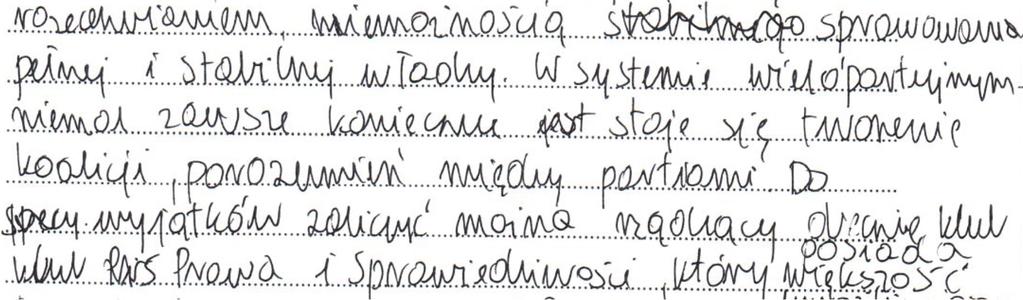 rozchwianiem, niemożnością stabilnego sprawowania
pełnej i stabilnej władzy. W systemie wielopartyjnym
niemal zawsze konieczne jest staje się tworzenie
koalicji, porozumień między partiami Do
wyjątków zaliczyć można rządzący obecnie klub
klub PiS Prawa i Sprawiedliwości, który posiada większość